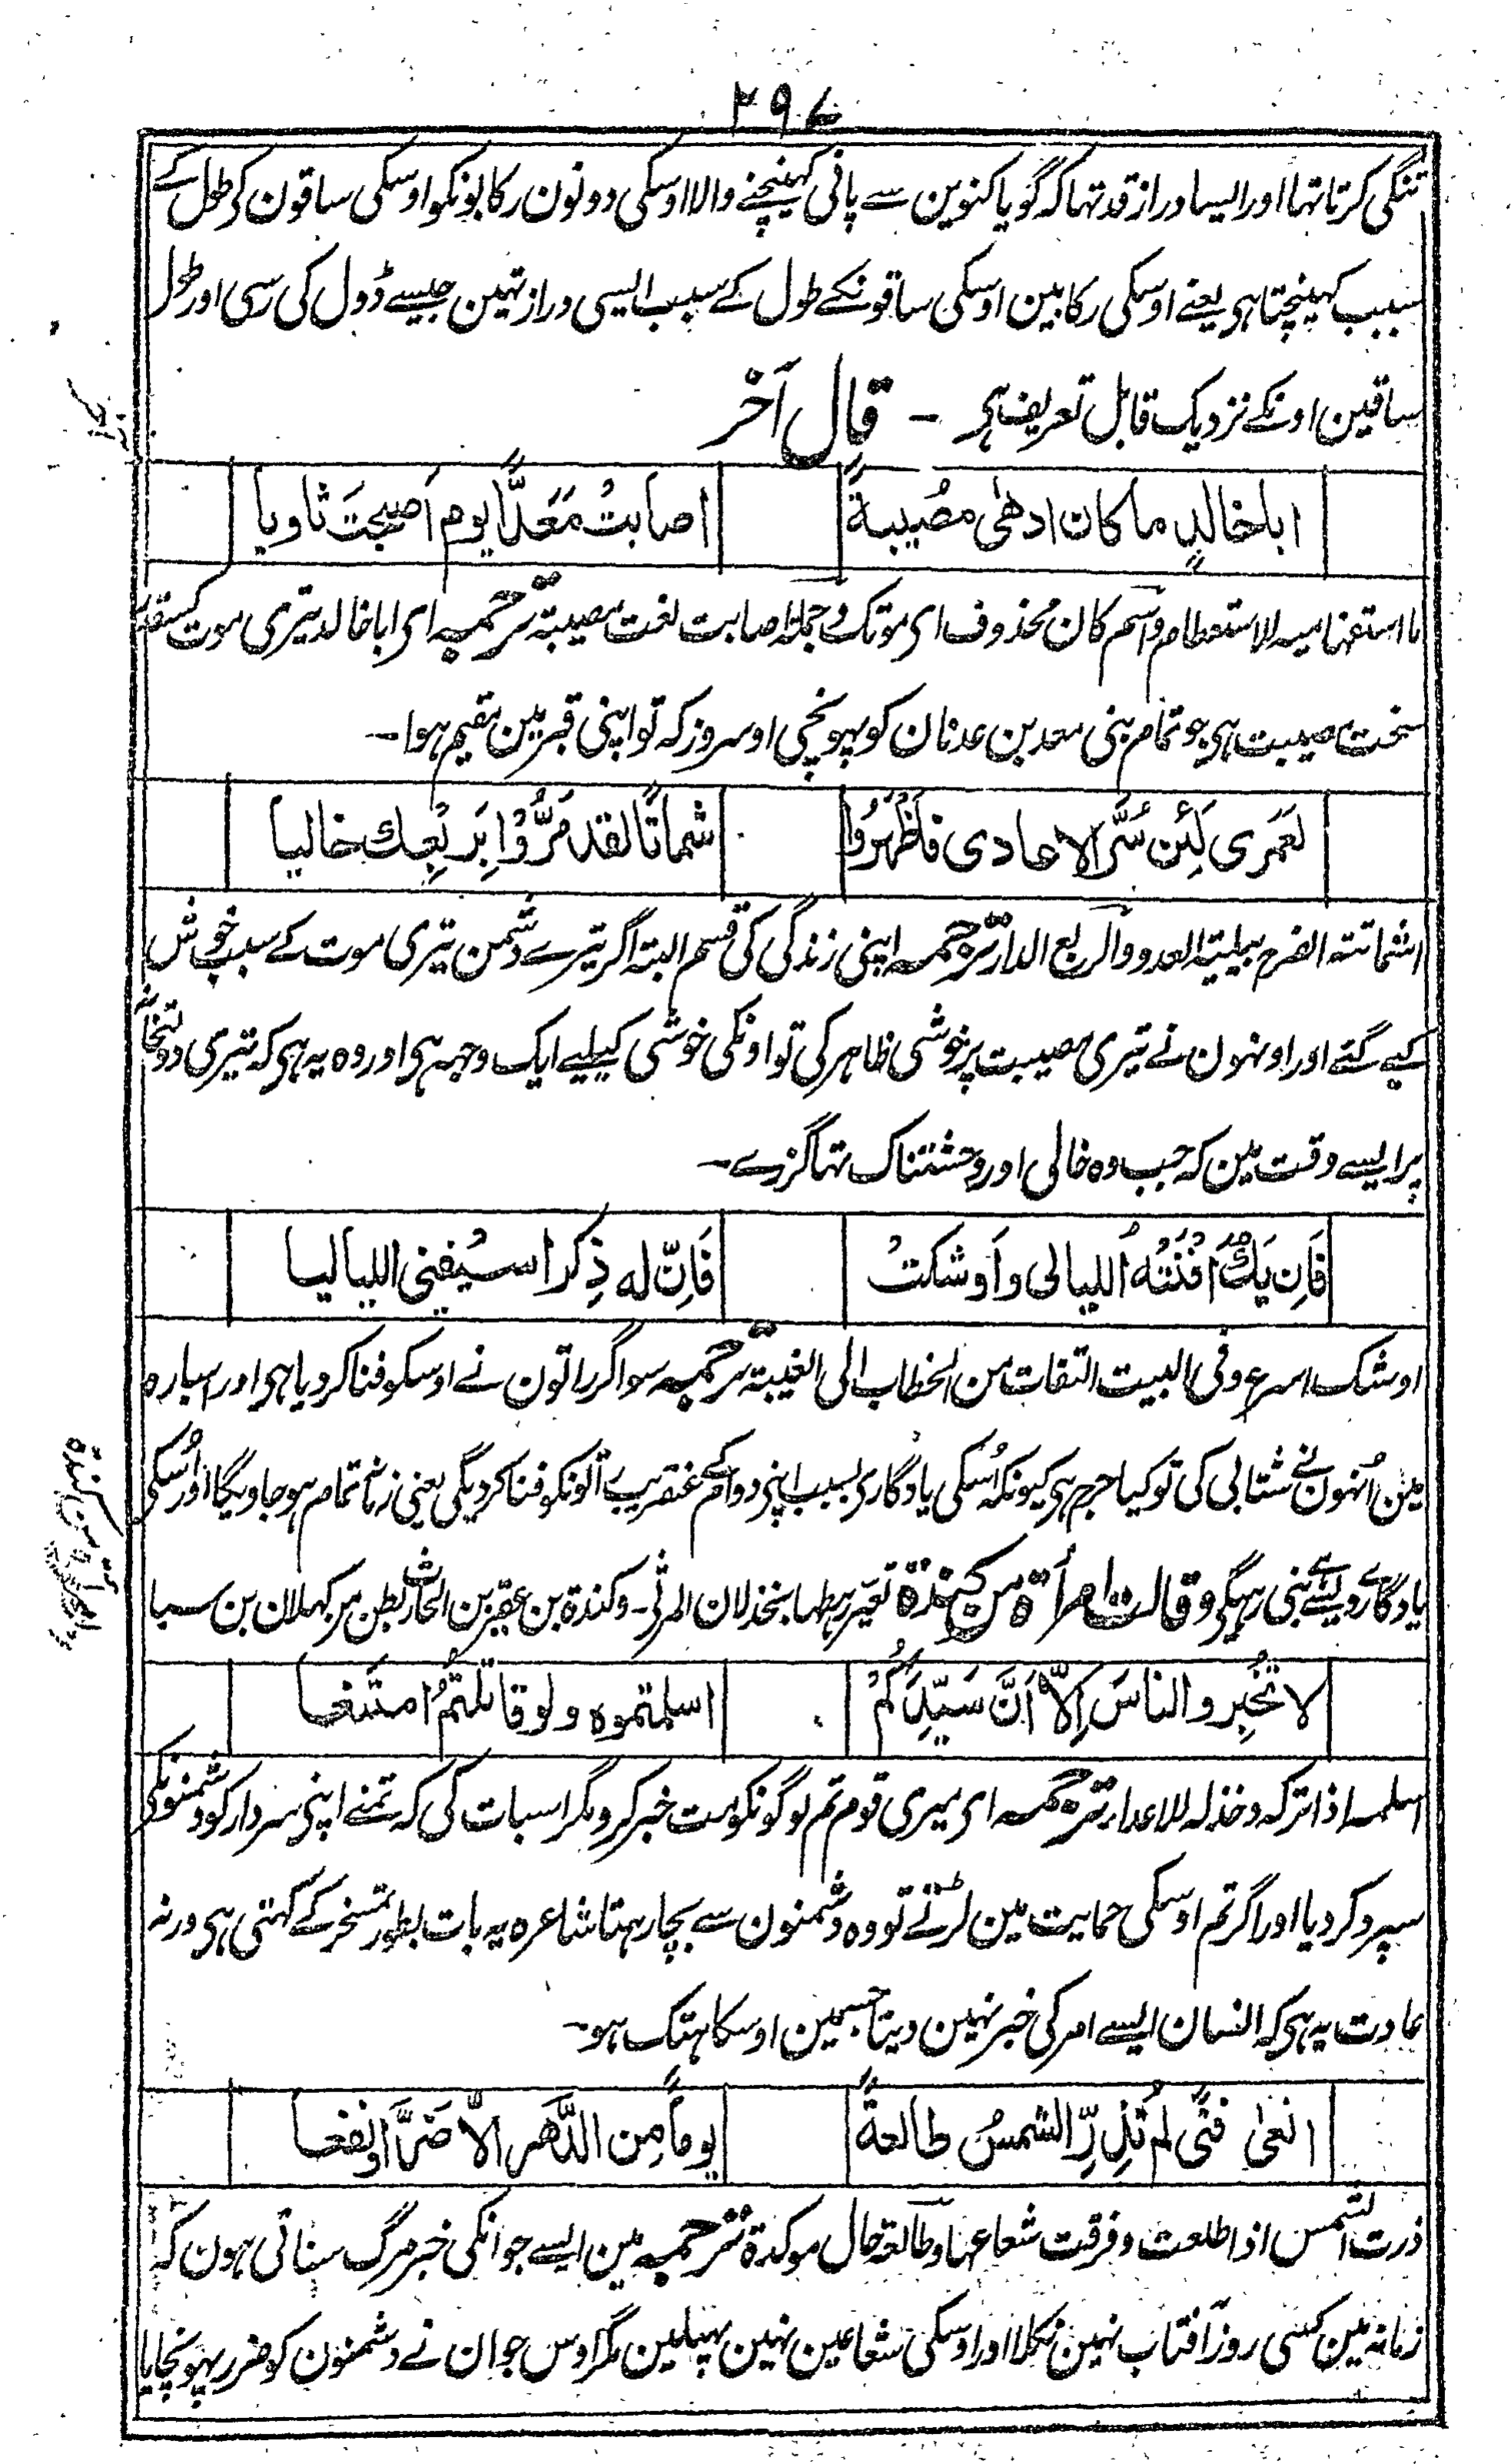 ۲۹۷
تنگی کرتا تھا اور ایسا دراز قد تھا کہ گویا کنوین سے پانی کھینچنے والا اوسکی دونون رکابونکو اوسکی ساقون کی طول کے
سبب کھینچتا ہی یعنے اوسکی رکابین اوسکی ساقونکے طول کے سبب ایسی دراز تہین جیسے ڈول کی رسی اور طول
ساقین اونکے نزدیک قابل تعریف ہی - قال آخر
ابا خالدٍ ما کان ادھٰی مصُیبةً اصابتْ مَعَدًّا یوم اَصبحتَ ثاویا
ما استفہامیہ للاستعظام واسم کان محذوف ای موتک وجملۃ اصابت نعت مصیبۃ ترجمہ ای ابا خالد تیری موت کسقدر
سخت مصیبت ہی جو تمام بنی معد بن عدنان کو پہونچی اوسروز کہ تو اپنی قبر مین مقیم ہوا -
لعَمری لَئِن سُرَّ الاعادی فَاَظْهَرُوا شماتًا لقد مَرُّوْا بِرَبْعِك خالیا
الشماتتہ الفرح ببلیۃ العدو والربع الدار ترجمہ اپنی زندگی کی قسم البتہ اگر تیرے دشمن تیری موت کے سبب خوش
کیے گئے اور اونہون نے تیری مصیبت پر خوشی ظاہر کی تو اونکی خوشی کیلیے ایک وجہ ہی اور وہ یہ ہی کہ تیری دولتخانہ
پر ایسے وقت مین کہ جب وہ خالی اور وحشتناک تہا گزرے -
فَاِن یَكُ اَفْنَتْهُ اللیالی واَوشكتْ فَاِنّ له ذِكرا سیُفنی اللیالیا
اوشک اسرع وفی البیت التفات من الخطاب الی الغیبۃ ترجمہ سو اگر راتون نے اوسکو فنا کر دیا ہی اور اسبارہ
مین اُنہون نے شتابی کی تو کیا حرج ہی کیونکہ اُسکی یادگاری بسبب اپنی دوام کے عنقریب راتونکو فنا کر دیگی یعنی زمانہ تمام ہو جاویگا اور اُسکی
یادگاری ویسے ہی بنی رہیگی وقالت امرأۃ من کِنْدۃ تعیّر رہطہا بخذلان المرثی - وکندۃ بن عفیر بن الحارث بطن من کہلان بن سبا
لا تخُبِروا الناسَ اِلّا اَنَّ سَیّدَكُمْ اسلمتموہ ولو قاتلتمُ امتنعا
اسلمہ اذا ترکہ وخذلہ للاعداء ترجمہ ای میری قوم تم لوگونکو مت خبر کرو مگر اسبات کی کہ تمنے اپنی سردار کو دشمنونکی
سپرد کر دیا اور اگر تم اوسکی حمایت مین لڑتے تو وہ دشمنون سے بچا رہتا شاعرہ یہ بات بطور تمسخر کے کہتی ہی ورنہ
عادت یہ ہی کہ انسان ایسے امر کی خبر نہین دیتا جسمین اوسکا ہتک ہو -
انعٰی فتًی لم تُذِرَّ الشمسُ طالعةً یوماً مِن الدَّهر الّا ضَرَّ او نفعا
ذرت الشمس اذا طلعت وفرقت شعاعہا وطالعۃ حال موکدۃ ترجمہ مین ایسے جوانکی خبر مرگ سناتی ہون کہ
زمانہ مین کسی روز آفتاب نہین نکلا اور اوسکی شعاعین نہین پہیلین مگر اوس جوان نے دشمنون کو ضرر پہونچایا